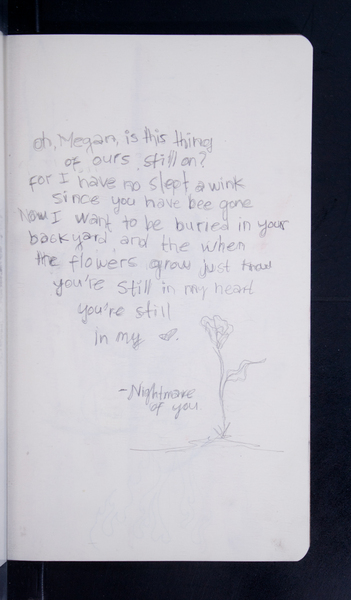 oh, Megan, is this thing
of ours still on?
for I have no slept a wink
since you have bee gone
Now I want to be buried in your
backyard and the when
the flowers grow just know
you're still in my heart
you're still
in my
-Nightmare
of you